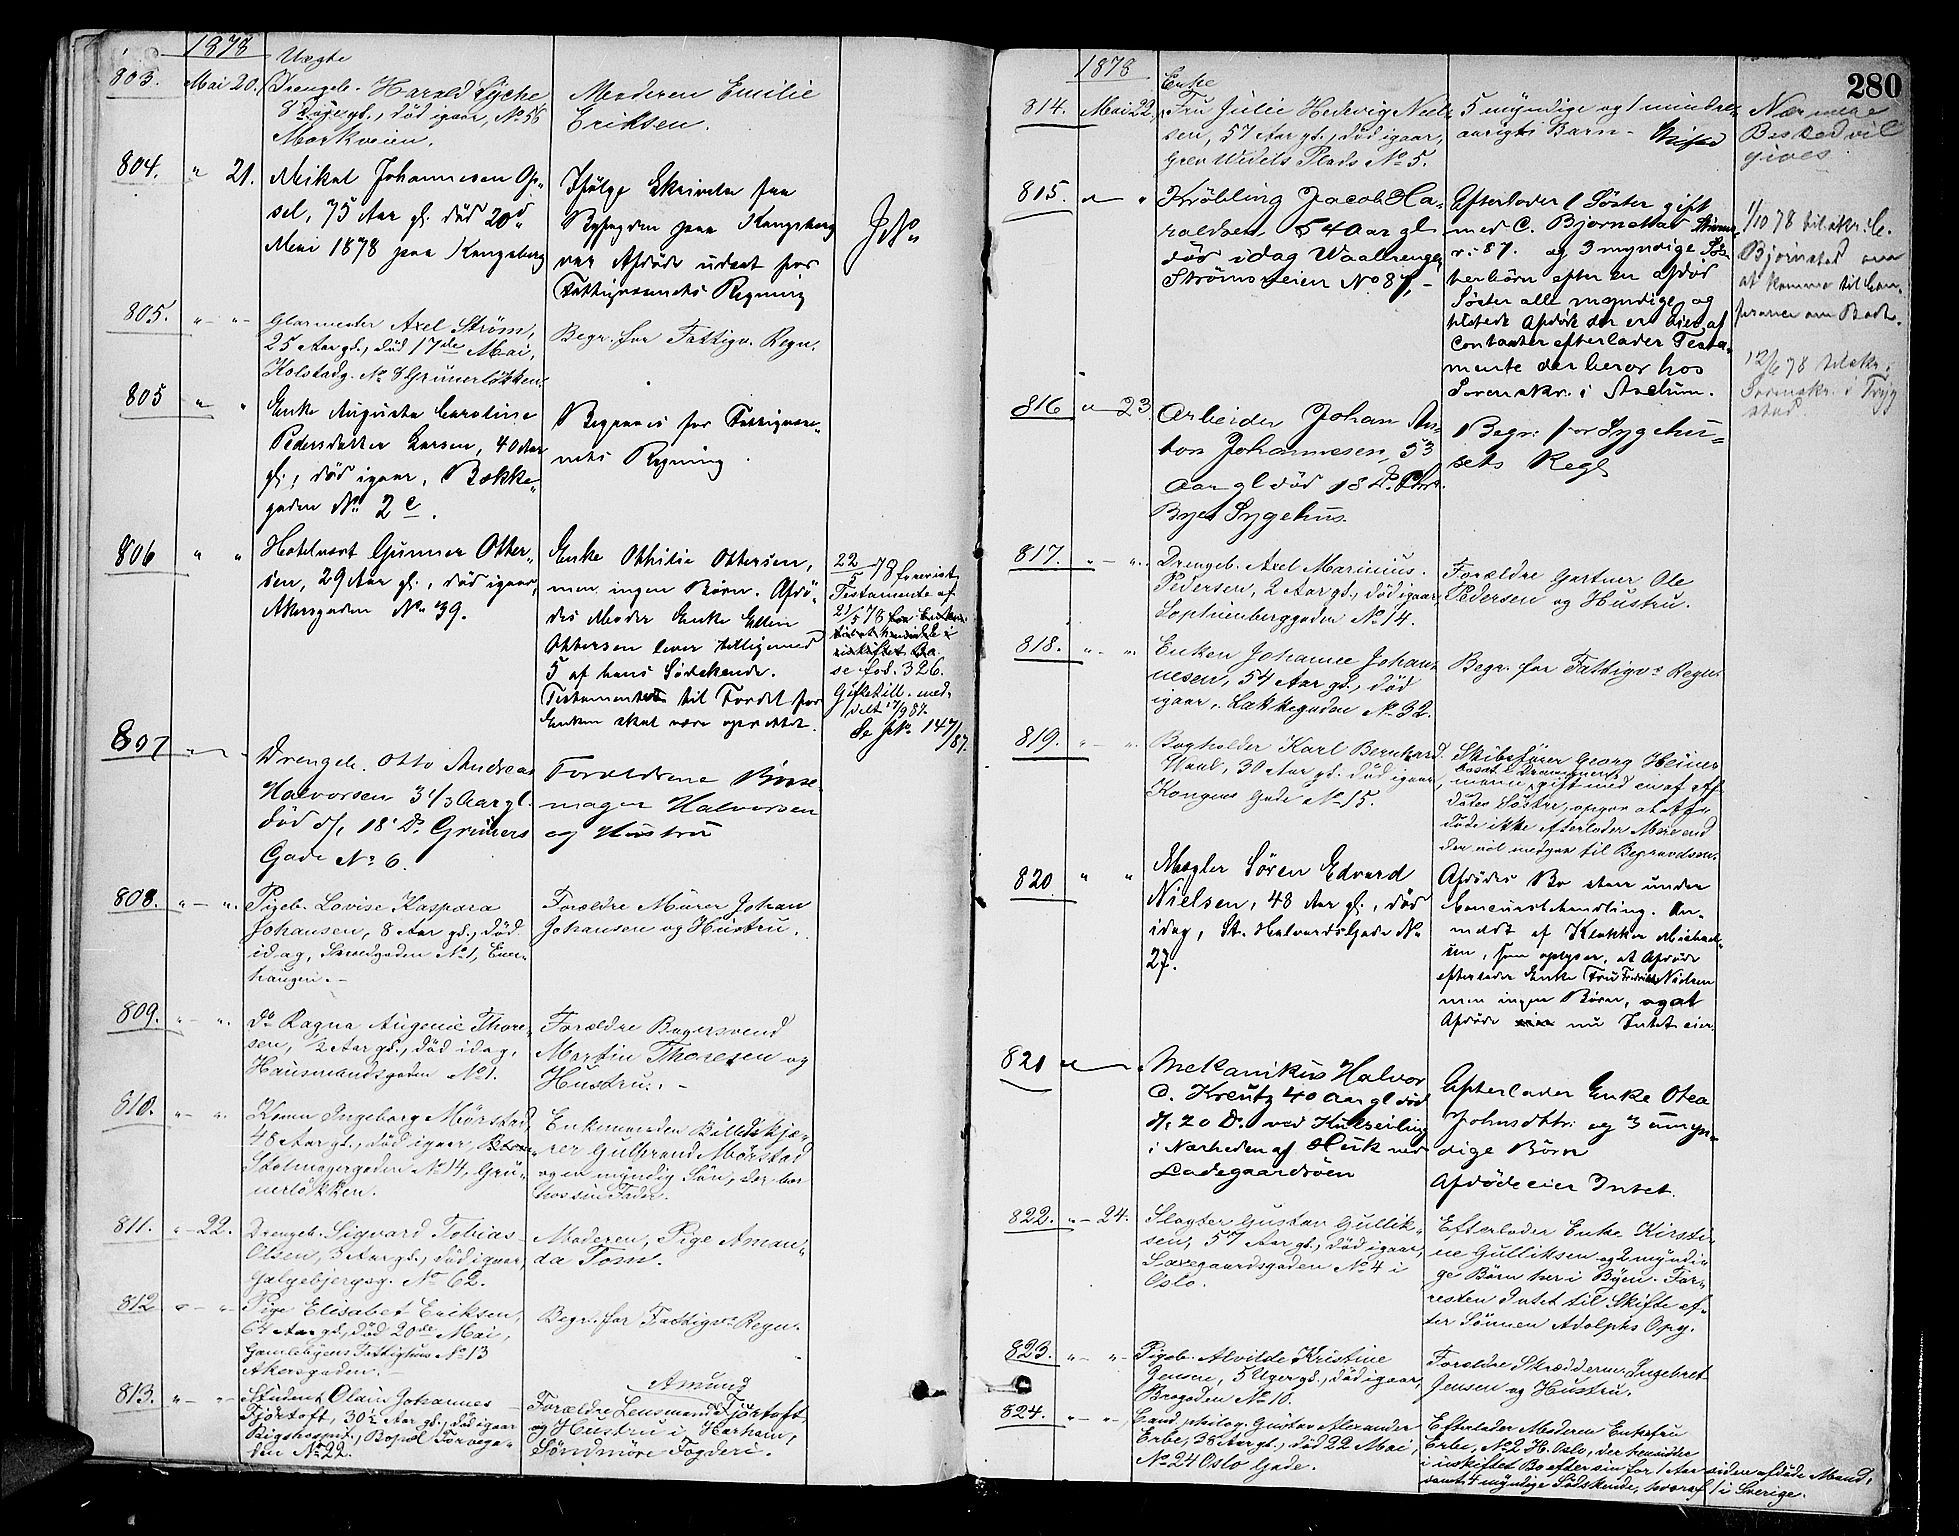 1878
Uægte
803. Mai 20. Drengeb. Harald Lyche Moderen Emilie
gl., död igaar, No 56 Eriksen.
Markveien.
804. " 21. Mikal Johannesen Op-
sel, 75 Aar gl. död 20d
Mai 1878 paa Kongsberg
Ifölge Skrivelse fra
Byfogden paa Kongsberg
var Afdöde udsat for
Fattigvæsenets Regning
805. " - " - Glarmester Axel Ström, Begr. for Fattigv. Regn.
25 Aar gl., död 17de Mai,
Kolstadg. No 8 Grünerlökken.
805 " " Enke Augusta Caroline
Pedersdatter Larsen, 40 Aar
gl., död igaar, Bække-
gaden No 2 c.
Begraves for Fattigvæse-
nets Regning
806 " " Hotelvært Gunnar Otter-
sen, 29 Aar gl., död igaar,
Akersgaden No 39.
Enke Othilie Ottersen,
men ingen Börn. Afdö-
des Moder Enke Ellen
Ottersen lever tilligemed
5 af hans Södskende.
Testament til Fordel for
Enken skal være oprettet.
22/5 78 forevist
Testamente af
21/5 78
se fol. 326.
Giftetill. med-
delt 17/9 87.
Se JNo 147/87.
807 Drengeb. Otto Andreas
Halvorsen 3 1/3 Aar gl.
död d/ 18 Ds Grüners
Gade No 6.
Forældrene Börse-
mager Halvorsen
og Hustru
808. " - ". Pigeb. Lovise Kaspara
Johansen, 8 Aar gl., död
idag, No 1, Ener-
haugen. -
Forældre Murer Johan
Johansen og Hustru.
809. " - ". do Ragna Augenie Thore-
sen, 2 Aar gl., död idag,
Hausmandsgaden No 1.
Forældre Bagersvend
Martin Thoresen og
Hustru. -
810. " - ". Konen Ingeborg Mörstad,
48 Aar gl., död igaar,
Skolmagergaden No 14, Grü-
nerlökken.
Enkemanden Billedskjæ-
rer Gulbrand Mörstad
og en myndig Sön, der bor
hos sin Fader.
811. " - 22. Drengeb. Sigvard Tobias
Olsen, 3 Aar gl., död igaar,
Galgebjergsg. No 62.
Moderen, Pige Aman-
da Tom.
812 " - " Pige Elisabet Eriksen,
64 Aar gl., död 20de Mai,
Gamlebyens Fattighus No 13
Akersgaden. -
Begr. for Fattigvs Regn.
813. " - " Student Olaus Johannes
Fjörtoft, 30 1/2 Aar gl., död igaar
Rigshospit., Bopæl Torvega-
den No 22.
Amund
Forældre Lensmand Fjörtoft
og Hustru i Harham,
Söndmöre Fogderi.
280
1878
Enke
814. Mai 22. Fru Julie Hedevig Niel-
sen, 57 Aar gl., död igaar,
Grev Wedels Plads No 5.
5 myndige og 1 mindre-
aarigt Barn -
Nærmere
Besked vil
gives.
815. " Fröbling Jacob Ha-
raldsen 54 Aar gl
död idag Waalerengen
Strömsveien No 87, -
Efterlader 1 Söster gift
med C. Bjornestad Ströms-
v. 87. og 3 myndige Sös-
terbörn efter en afdöd
Söster alle myndige, og
Afdöde der er eier af
Contanter efterlader Testa-
mente der beror hos
Sorenskr. i Askim.
1/10 78 til skr. C.
Bjørnestad om
at komme til Con-
ferance om Boet.
12/6 78 tilskr.
Sorenskr. i Tryg
stad.
816 " - 23. Arbeider Johan An-
ton Johannesen, 53
Aar gl död 18 Ds
Byes Sygehus.
Begr: for Sygehu-
sets Regn
817. " - ". Drengeb. Axel Marinius
Pedersen, 2 Aar gl., död igaar,
Sophienberggaden No 14.
Forældre Gartner Ole
Pedersen og Hustru.
818. " - ". Enken Johanne Johan-
nesen, 54 Aar gl., död
igaar, Lakkegaden No 32.
Begr. for Fattigvs Regn.
819. " - ". Bogholder Karl Bernhard
Waal, 30 Aar gl. död igaar,
Kongens Gade No 15.
Skibsförer Georg Heiner
Bosat i Drammen
mann, gift med en af Af-
dödes Söstre, opgav at Af-
döde ikke efterlader Mere end
der vil medgaa til Begravelsen.
820 " " Mægler Sören Edvard
Nielsen, 48 Aar gl., död
idag, St. Halvards Gade No
27.
Afdödes Bo staar under
Concursbehandling. An-
meldt af Klokker Michael-
sen, som oplyser, at Afdöde
efterlader Enke Fru Nielsen
men ingen Börn, og at
Afdöde nu Intet eier
821 Mekanikus Halvor
O. Kreutz 40 Aar gl död
d/ 20 Ds ved Kulseiling
i Nærheden af Huk ved
Ladegaardsöen
Efterlader Enke Otea
Johnsdtr: og 3 umyn-
dige Börn
Afdöde eier Intet.
822. " - 24. Slagter Gustav Gullik-
sen, 57 Aar gl., död igaar,
Saxegaardsgaden No 4 i
Oslo.
Efterlader Enke Kirsti-
ne Gulliksen og 2 myndi-
ge Börn her i Byen. For-
resten Intet til Skifte ef-
ter Sönnen Adolphs Opg.
823. " - " - Pigeb. Alvilde Kristine
Jensen, 5 Uger gl., död igaar,
Brogaden No 10.
Forældre Skrædderm. Ingebret
Jensen og Hustru.
824. " - " - Cand. philog. Gustav Alexander
Erbe, 38 Aar gl., död 22 Mai,
No 24 Oslo Gade.
Efterlader Moderen Enkefru
Erbe, No 2 H. Oslo, der hensidder
i uskiftet Bo efter sin for 1 Aar siden afdöde Mand,
samt 4 myndige Södskende, hvoraf 1 i Sverige.